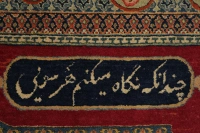 چندانکه نگاه میکنم هر سوئی